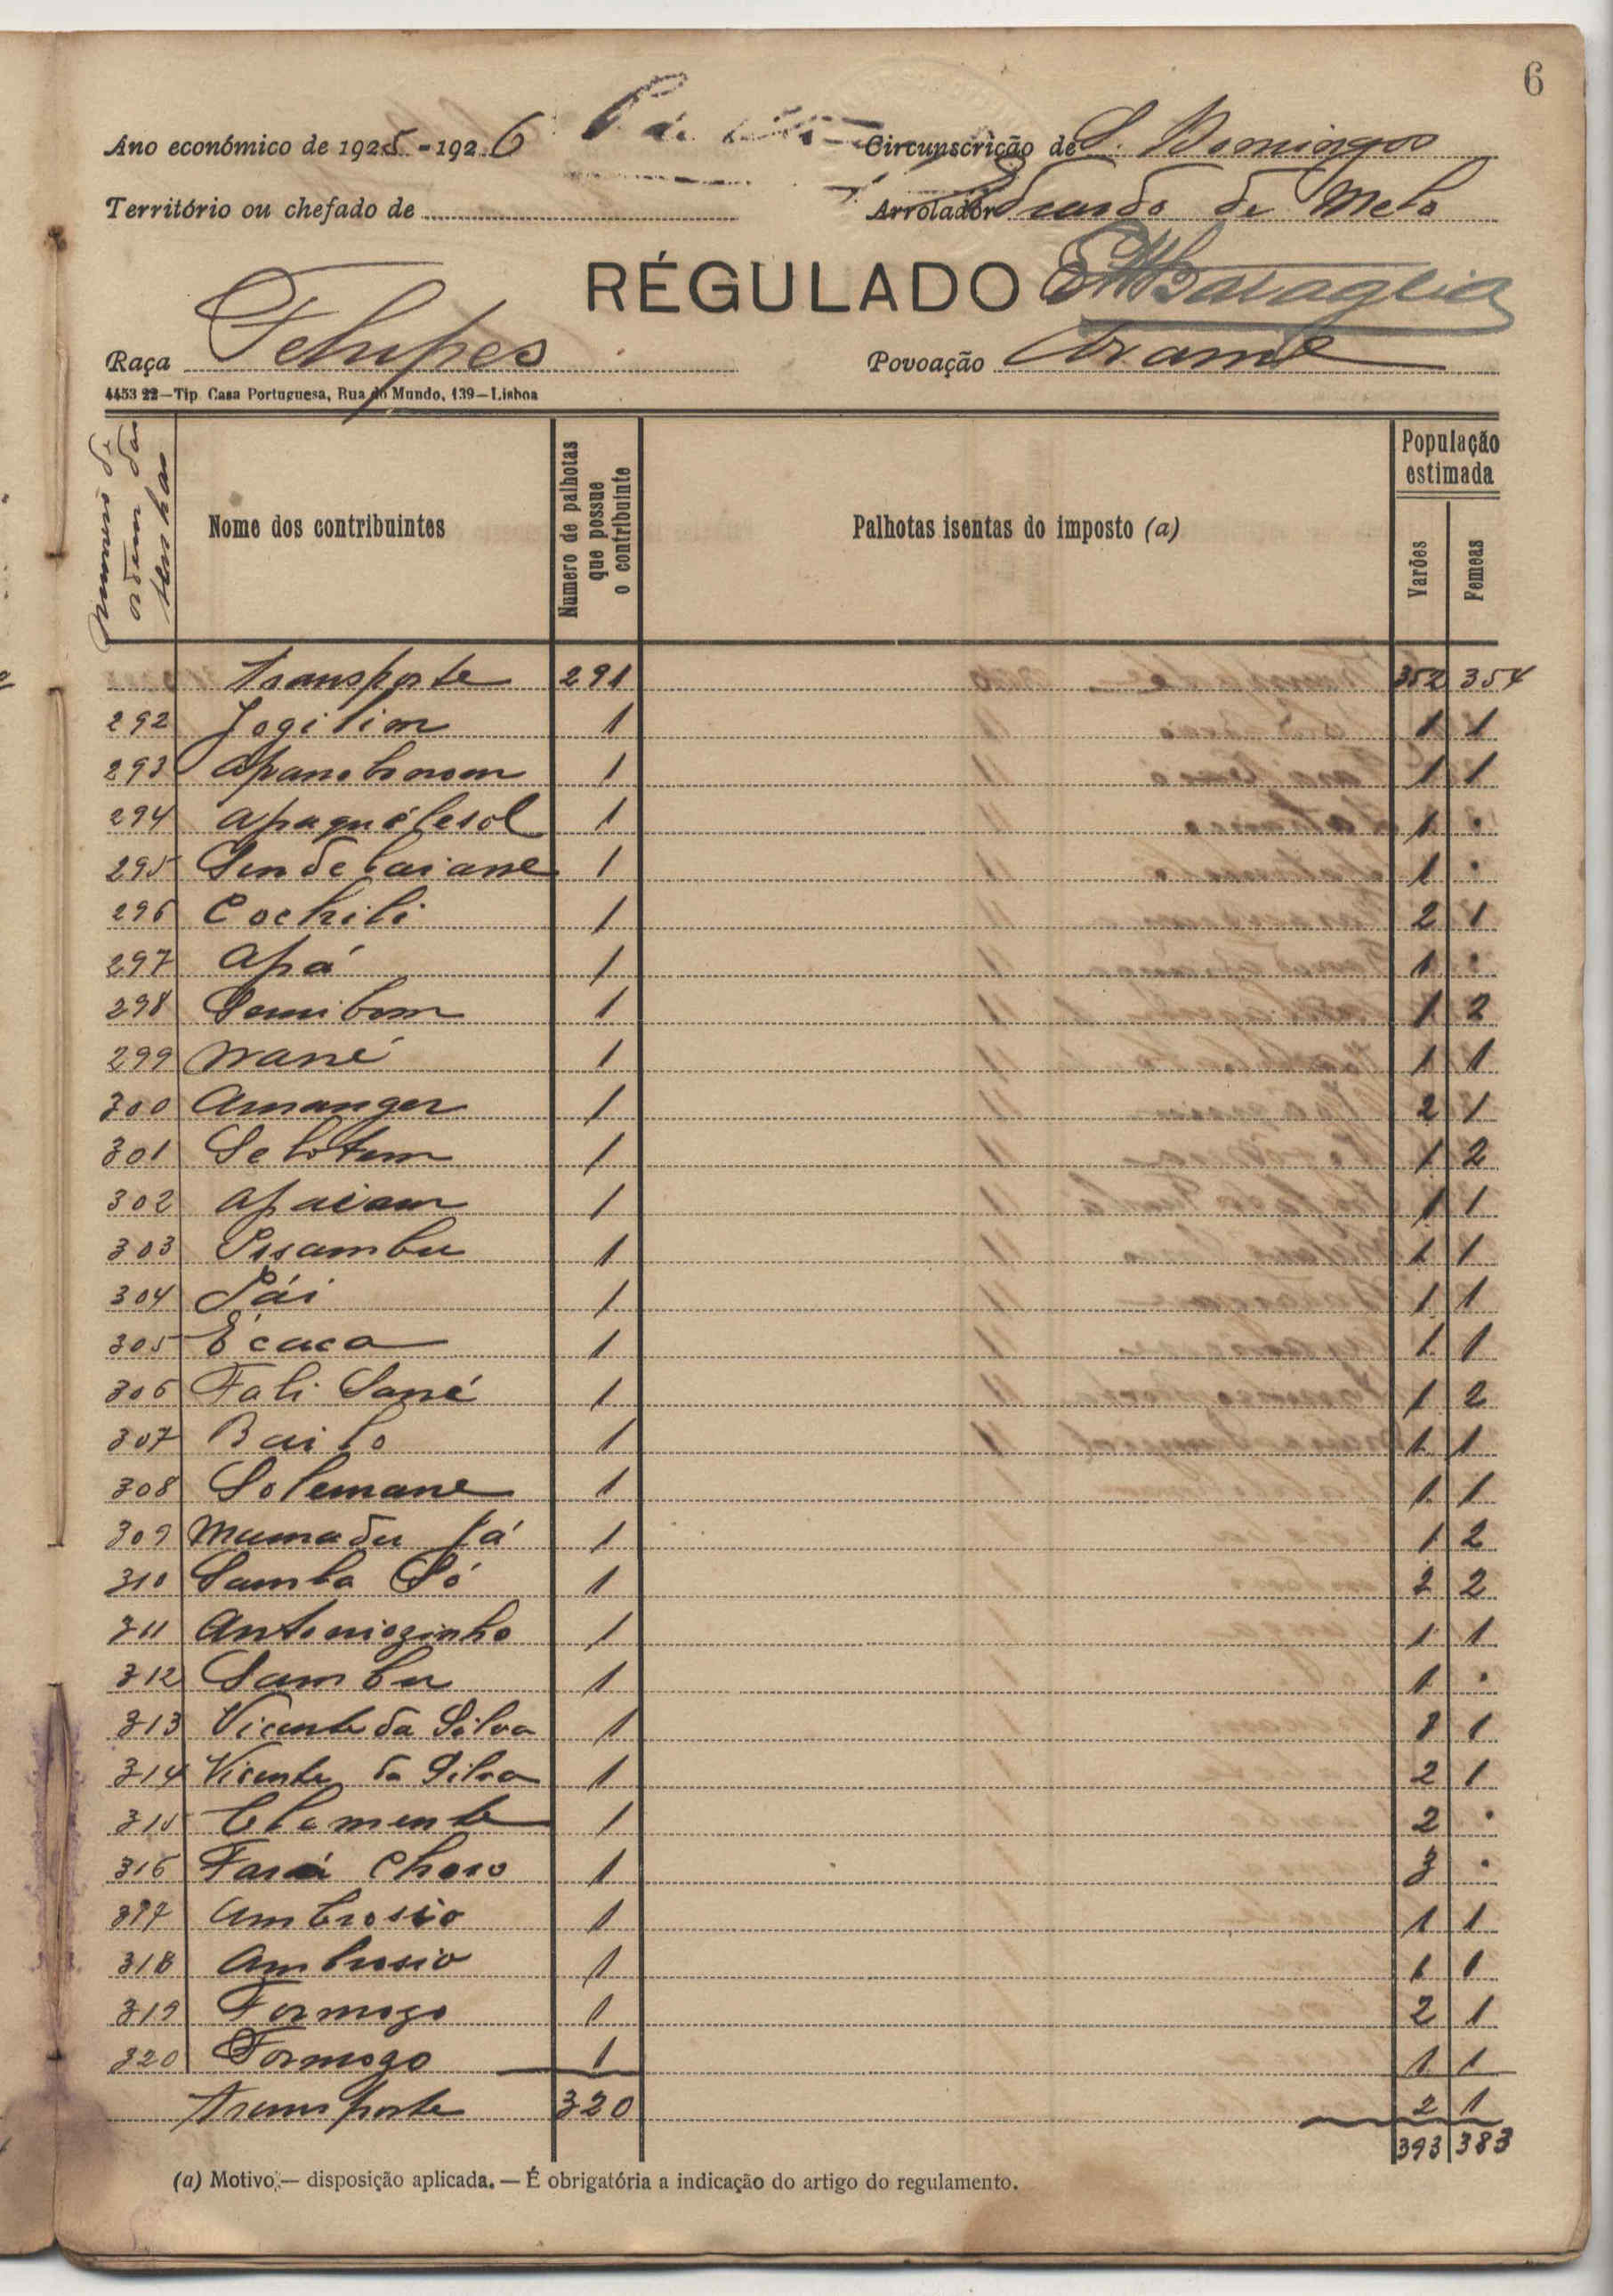 6
Ano económico de 1925-1926
Circunscrição de S. Domingos
Território ou chefado de
Arrolador Eduardo de Melo
RÉGULADO
Raça Felupes
Povoação Arame
4453 22—Tip. Casa Portuguesa, Rua do Mundo, 139—Lisboa
Numero de ordem das senhas
Nome dos contribuintes
Numero de palhotas que possue o contribuinte
Palhotas isentas do imposto (a)
População estimada
Varões
Femeas
Transporte 291 352 354
292 Jogilim 1 1 1
293 1 1 1
294 1 1 .
295 1 1 .
296 Cochili 1 2 1
297 Apá 1 1 .
298 Semibom 1 1 2
299 Nané 1 1 1
300 Amanger 1 2 1
301 Selotem 1 1 2
302 Apaiam 1 1 1
303 Pisambu 1 1 1
304 Pái 1 1 1
305 Ecaca 1 1 1
306 Fali Sané 1 1 2
307 Bailo 1 1 1
308 Solemane 1 1 1
309 Mumadu Já 1 1 2
310 Samba Só 1 2 2
311 Antoniozinho 1 1 1
312 Sambu 1 1 .
313 Vicente da Silva 1 1
314 Vicente da Silva 1 2 1
315 Clemente 1 2 .
316 Fará Choro 1 3 .
317 Ambrosio 1 1 1
318 Ambrosio 1 1 1
319 Formozo 1 2 1
320 Formozo 1 1 1
Transporte 320 2 1
393 383
(a) Motivo,— disposição aplicada.— É obrigatória a indicação do artigo do regulamento.